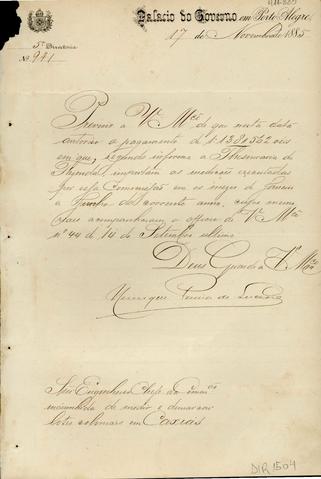 Palacio do Governo em Porto Alegre,
17 de Novembro de 1885
5ª Directoria
Nº 941
Previno a Vª Mcê de que nesta data
autoriso o pagamento de 1:138$552 reis
em que, segundo informa a Thesouraria de
Fazenda, importam as medições executadas
por essa Commissão em os mezes de Janeiro
a Junho do corrente anno, cujas
acompanharam o officio de Vª Mcê
nº 44 de 14 de Setembro ultimo.
Deus Guarde a Vª Mcê
Henrique Pereira de Lucena
Snr. Engenheiro Chefe da Commissão
incumbida de medir e demarcar
lotes coloniaes em Caxias
DIR 1504